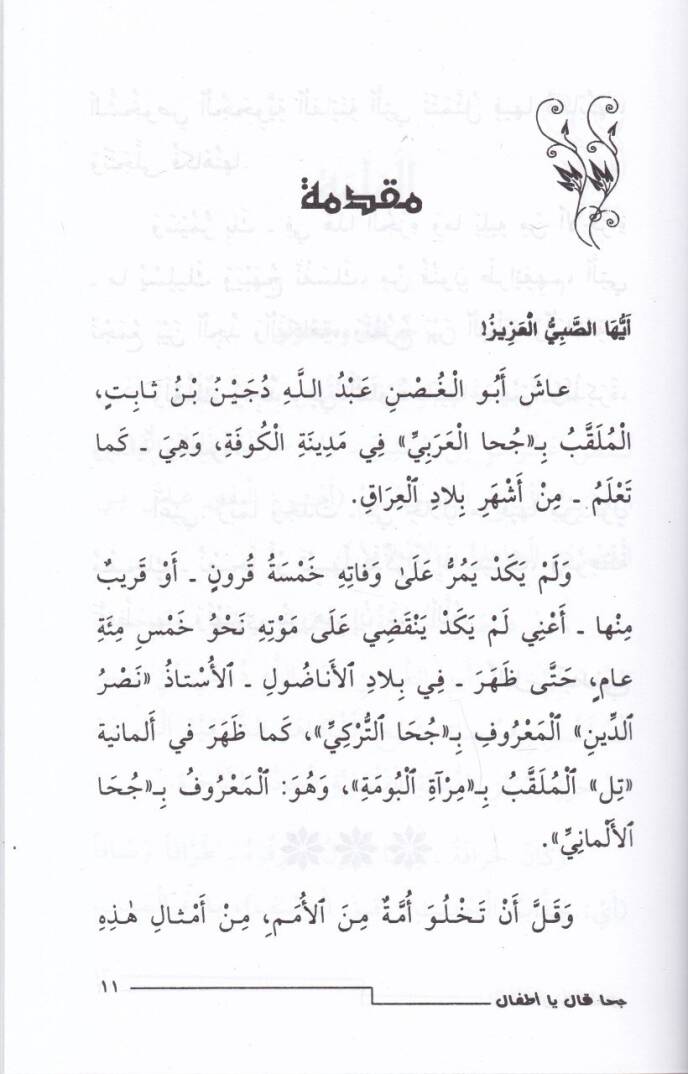 مقدمة
أَيُّهَا الصَّبِيُّ الْعَزِيزُ!
عاشَ أَبُو الْغُصْنِ عَبْدُ اللَّهِ دُجَيْنُ بْنُ ثابِتٍ،
الْمُلَقَّبُ بِـ«جُحا العَرَبِيِّ» فِي مَدِينَةِ الْكُوفَةِ، وَهِيَ ـ كَما
تَعْلَمُ ـ مِنْ أَشْهَرِ بِلادِ ٱلْعِرَاقِ.
وَلَمْ يَكَدْ يَمُرُّ عَلَىٰ وَفاتِهِ خَمْسَةُ قُرونٍ ـ أَوْ قَرِيبٌ
مِنْها ـ أَعْنِي لَمْ يَكَدْ يَنْقَضِي عَلَى مَوْتِهِ نَحْوُ خَمْسِ مِئَةِ
عامٍ، حَتَّى ظَهَرَ ـ فِي بِلادِ ٱلأَناضُولِ ـ ٱلأُسْتاذُ «نَصْرُ
الدِّينِ» ٱلْمَعْرُوفِ بِـ«جُحَا ٱلتُّرْكِيِّ»، كَما ظَهَرَ في أَلمانية
«تِل» ٱلْمُلَقَّبُ بِـ«مِرْآةِ ٱلْبُومَةِ»، وَهُوَ: ٱلْمَعْرُوفُ بِـ«جُحَا
ٱلأَلْمانِيِّ».
وَقَلَّ أَنْ تَخْلُوَ أُمَّةٌ مِنَ ٱلأُمَمِ، مِنْ أَمْثالِ هٰذِهِ
جحا قال يا أطفال
١١